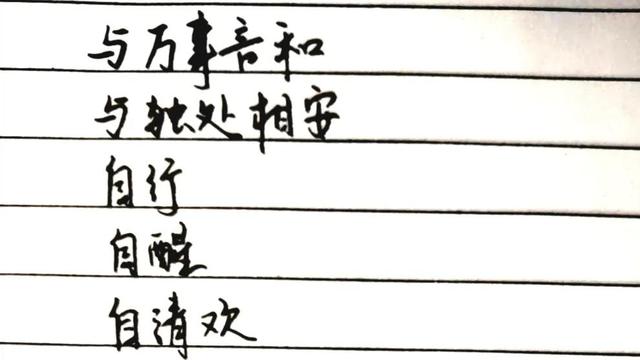 与万事言和
与独处相安
自行
自醒
自清欢